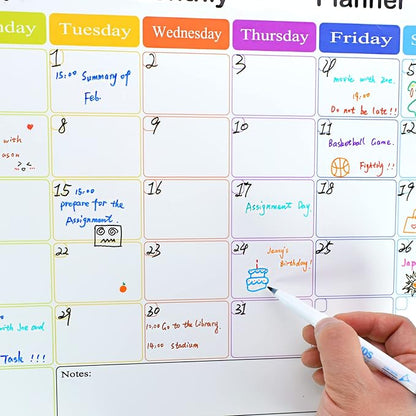 Planner
nday
Tuesday
Wednesday
Thursday
Friday
S
1
15:00 Summary of
Feb.
2
3
4
movie with Zoe.
19:00
Do not be late!!
5
with
ason
8
9
10
11
Basketball Game.
Fighting !!
12
15 15:00
prepare for the
Assignment.
16
17
Assignment Day.
18
19
22
23
24
Jenny's
Birthday!
25
26
Jap
with Joe and
Task !!!
29
30
10:00 Go to the library.
14:00 stadium
31
Notes: